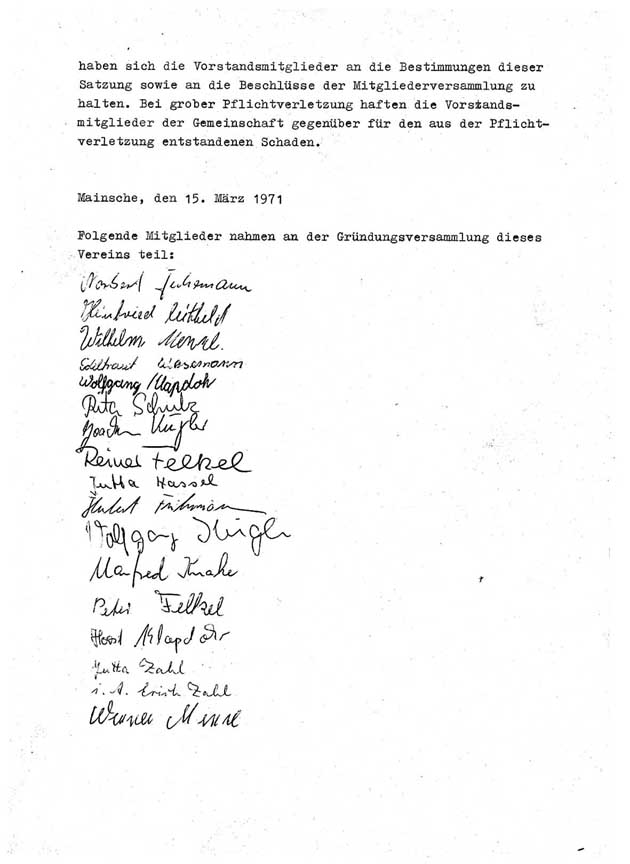 haben sich die Vorstandsmitglieder an die Bestimmungen dieser
Satzung sowie an die Beschlüsse der Mitgliederversammlung zu
halten. Bei grober Pflichtverletzung haften die Vorstands-
mitglieder der Gemeinschaft gegenüber für den aus der Pflicht-
verletzung entstandenen Schaden.
Mainsche, den 15. März 1971
Folgende Mitglieder nahmen an der Gründungsversammlung dieses
Vereins teil:
Norbert
Wilhelm
Edeltraut Wasemann
Wolfgang Klapdoh
Rita Schulz
Joachim Kugler
Reiner Felkel
Jutta Hassel
Hubert
Wolfgang Kugler
Manfred Knake
Peter Felkel
Horst Klapdohr
Jutta Zahl
i.A. Erich Zahl
Werner